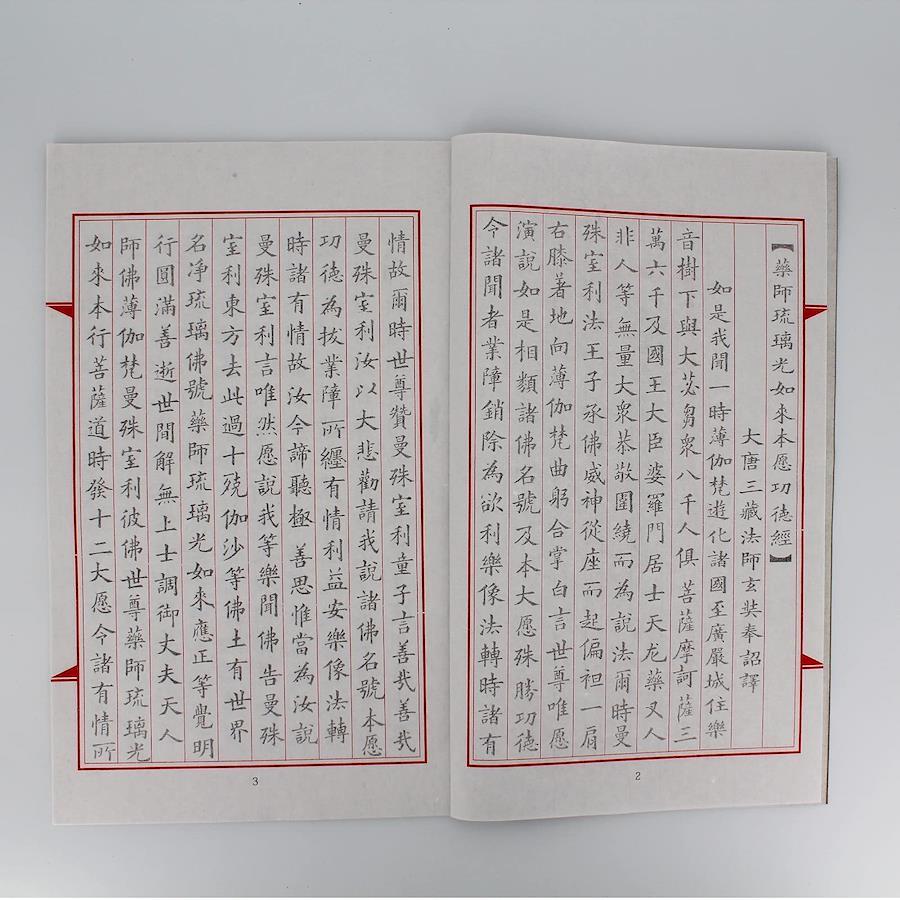 【藥師琉璃光如來本愿功德經】
大唐三藏法師玄奘奉詔譯
如是我聞一時薄伽梵遊化諸國至廣嚴城住樂
音樹下與大苾芻衆八千人俱菩薩摩訶薩三
萬六千及國王大臣婆羅門居士天龙藥叉人
非人等無量大衆恭敬圍繞而為說法爾時曼
殊室利法王子承佛威神從座而起偏袒一肩
右膝著地向薄伽梵曲躬合掌白言世尊唯愿
演說如是相類諸佛名號及本大愿殊勝功德
令諸聞者業障銷除為欲利樂像法轉時諸有
2
情故爾時世尊贊曼殊室利童子言善哉善哉
曼殊室利汝以大悲勸請我說諸佛名號本愿
功德為拔業障所纏有情利益安樂像法轉
時諸有情故汝今諦聽極善思惟當為汝說
曼殊室利言唯然愿說我等樂聞佛告曼殊
室利東方去此過十殑伽沙等佛土有世界
名净琉璃佛號藥師琉璃光如來應正等覺明
行圓滿善逝世間解無上士調御丈夫天人
師佛薄伽梵曼殊室利彼佛世尊藥師琉璃光
如來本行菩薩道時發十二大愿令諸有情所
3